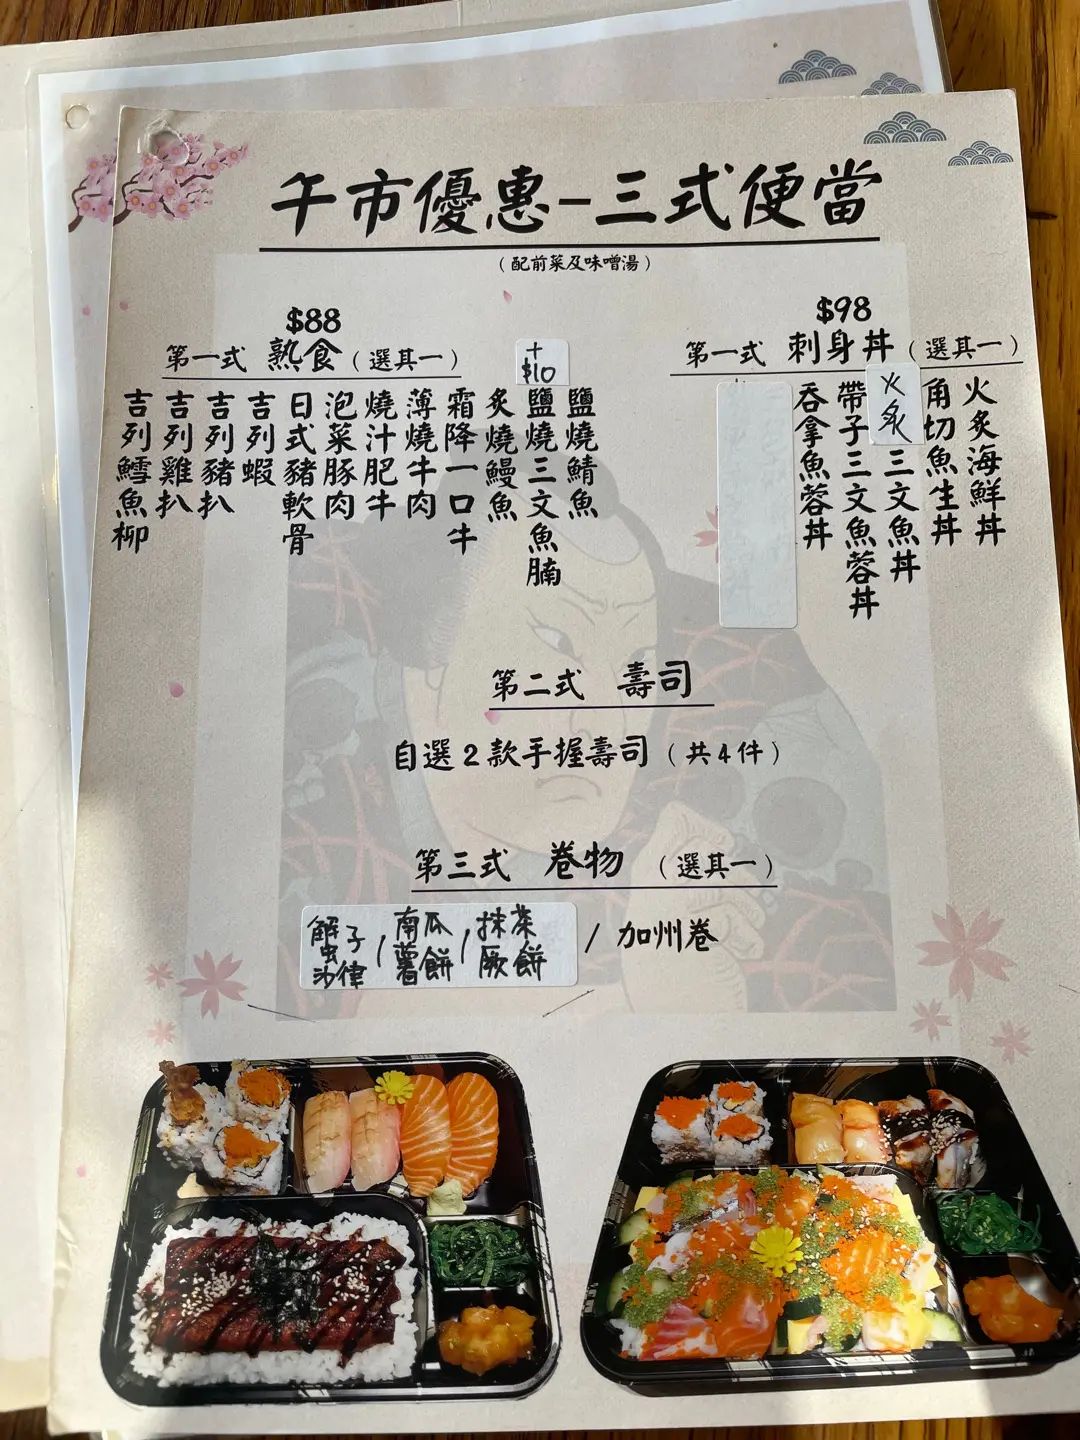 午市優惠-三式便當
（配前菜及味噌湯）
$88
第一式 熟食（選其一）
吉列鱈魚柳
吉列雞扒
吉列豬扒
吉列蝦
日式豬軟骨
泡菜豚肉
燒汁肥牛
薄燒牛肉
霜降一口牛
炙燒鰻魚
+$10
鹽燒三文魚腩
鹽燒鯖魚
$98
第一式 刺身丼（選其一）
吞拿魚蓉丼
帶子三文魚蓉丼
火炙三文魚丼
角切魚生丼
火炙海鮮丼
第二式 壽司
自選2款手握壽司（共4件）
第三式 卷物（選其一）
蟹子沙律/南瓜薯餅/抹茶蕨餅/加州卷